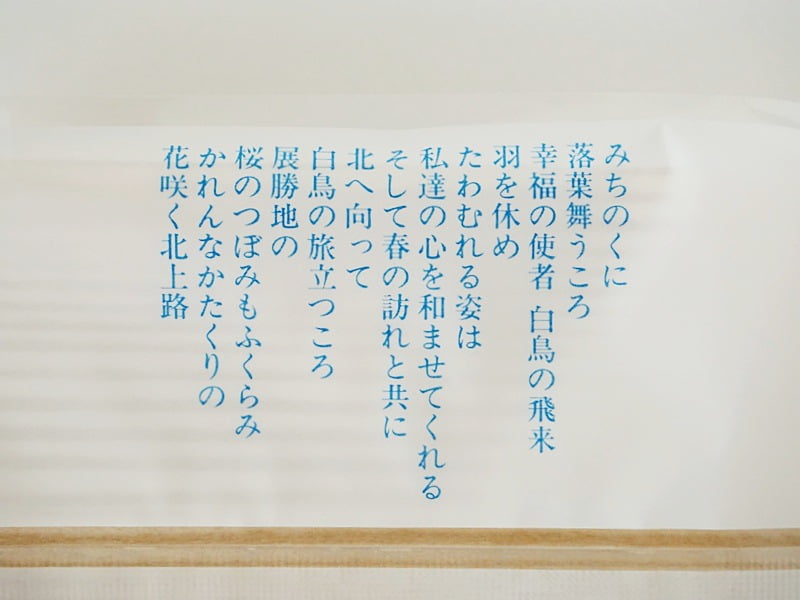 みちのくに
落葉舞うころ
幸福の使者 白鳥の飛来
羽を休め
たわむれる姿は
私達の心を和ませてくれる
そして春の訪れと共に
北へ向って
白鳥の旅立つころ
展勝地の
桜のつぼみもふくらみ
かれんなかたくりの
花咲く北上路